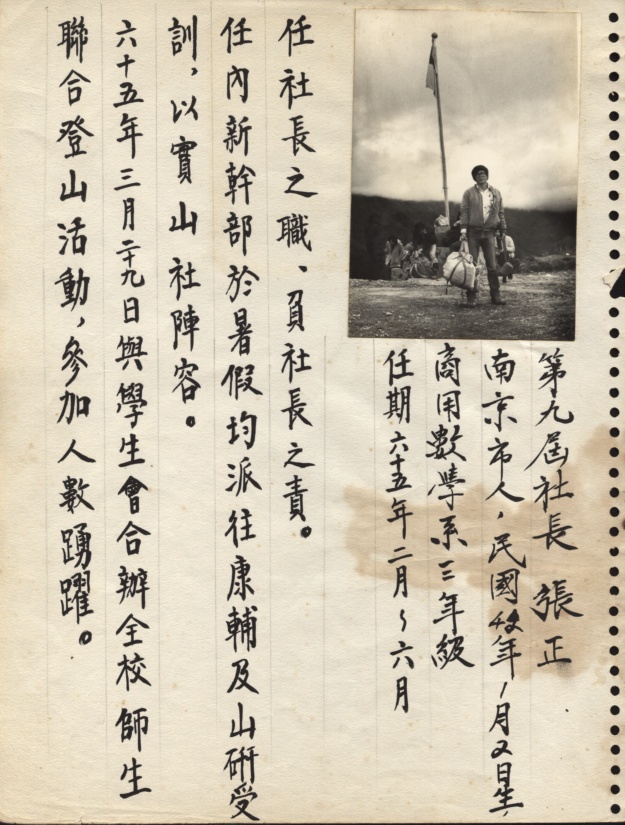 第九屆社長 張正
南京市人，民國42年1月又日生，
商用數學系三年級
任期六十五年二月～六月
任社長之職、負社長之責。
任內新幹部於暑假均派往康輔及山研受
訓，以實山社陣容。
六十五年三月二十九日與學生會合辦全校師生
聯合登山活動，參加人數踴躍。